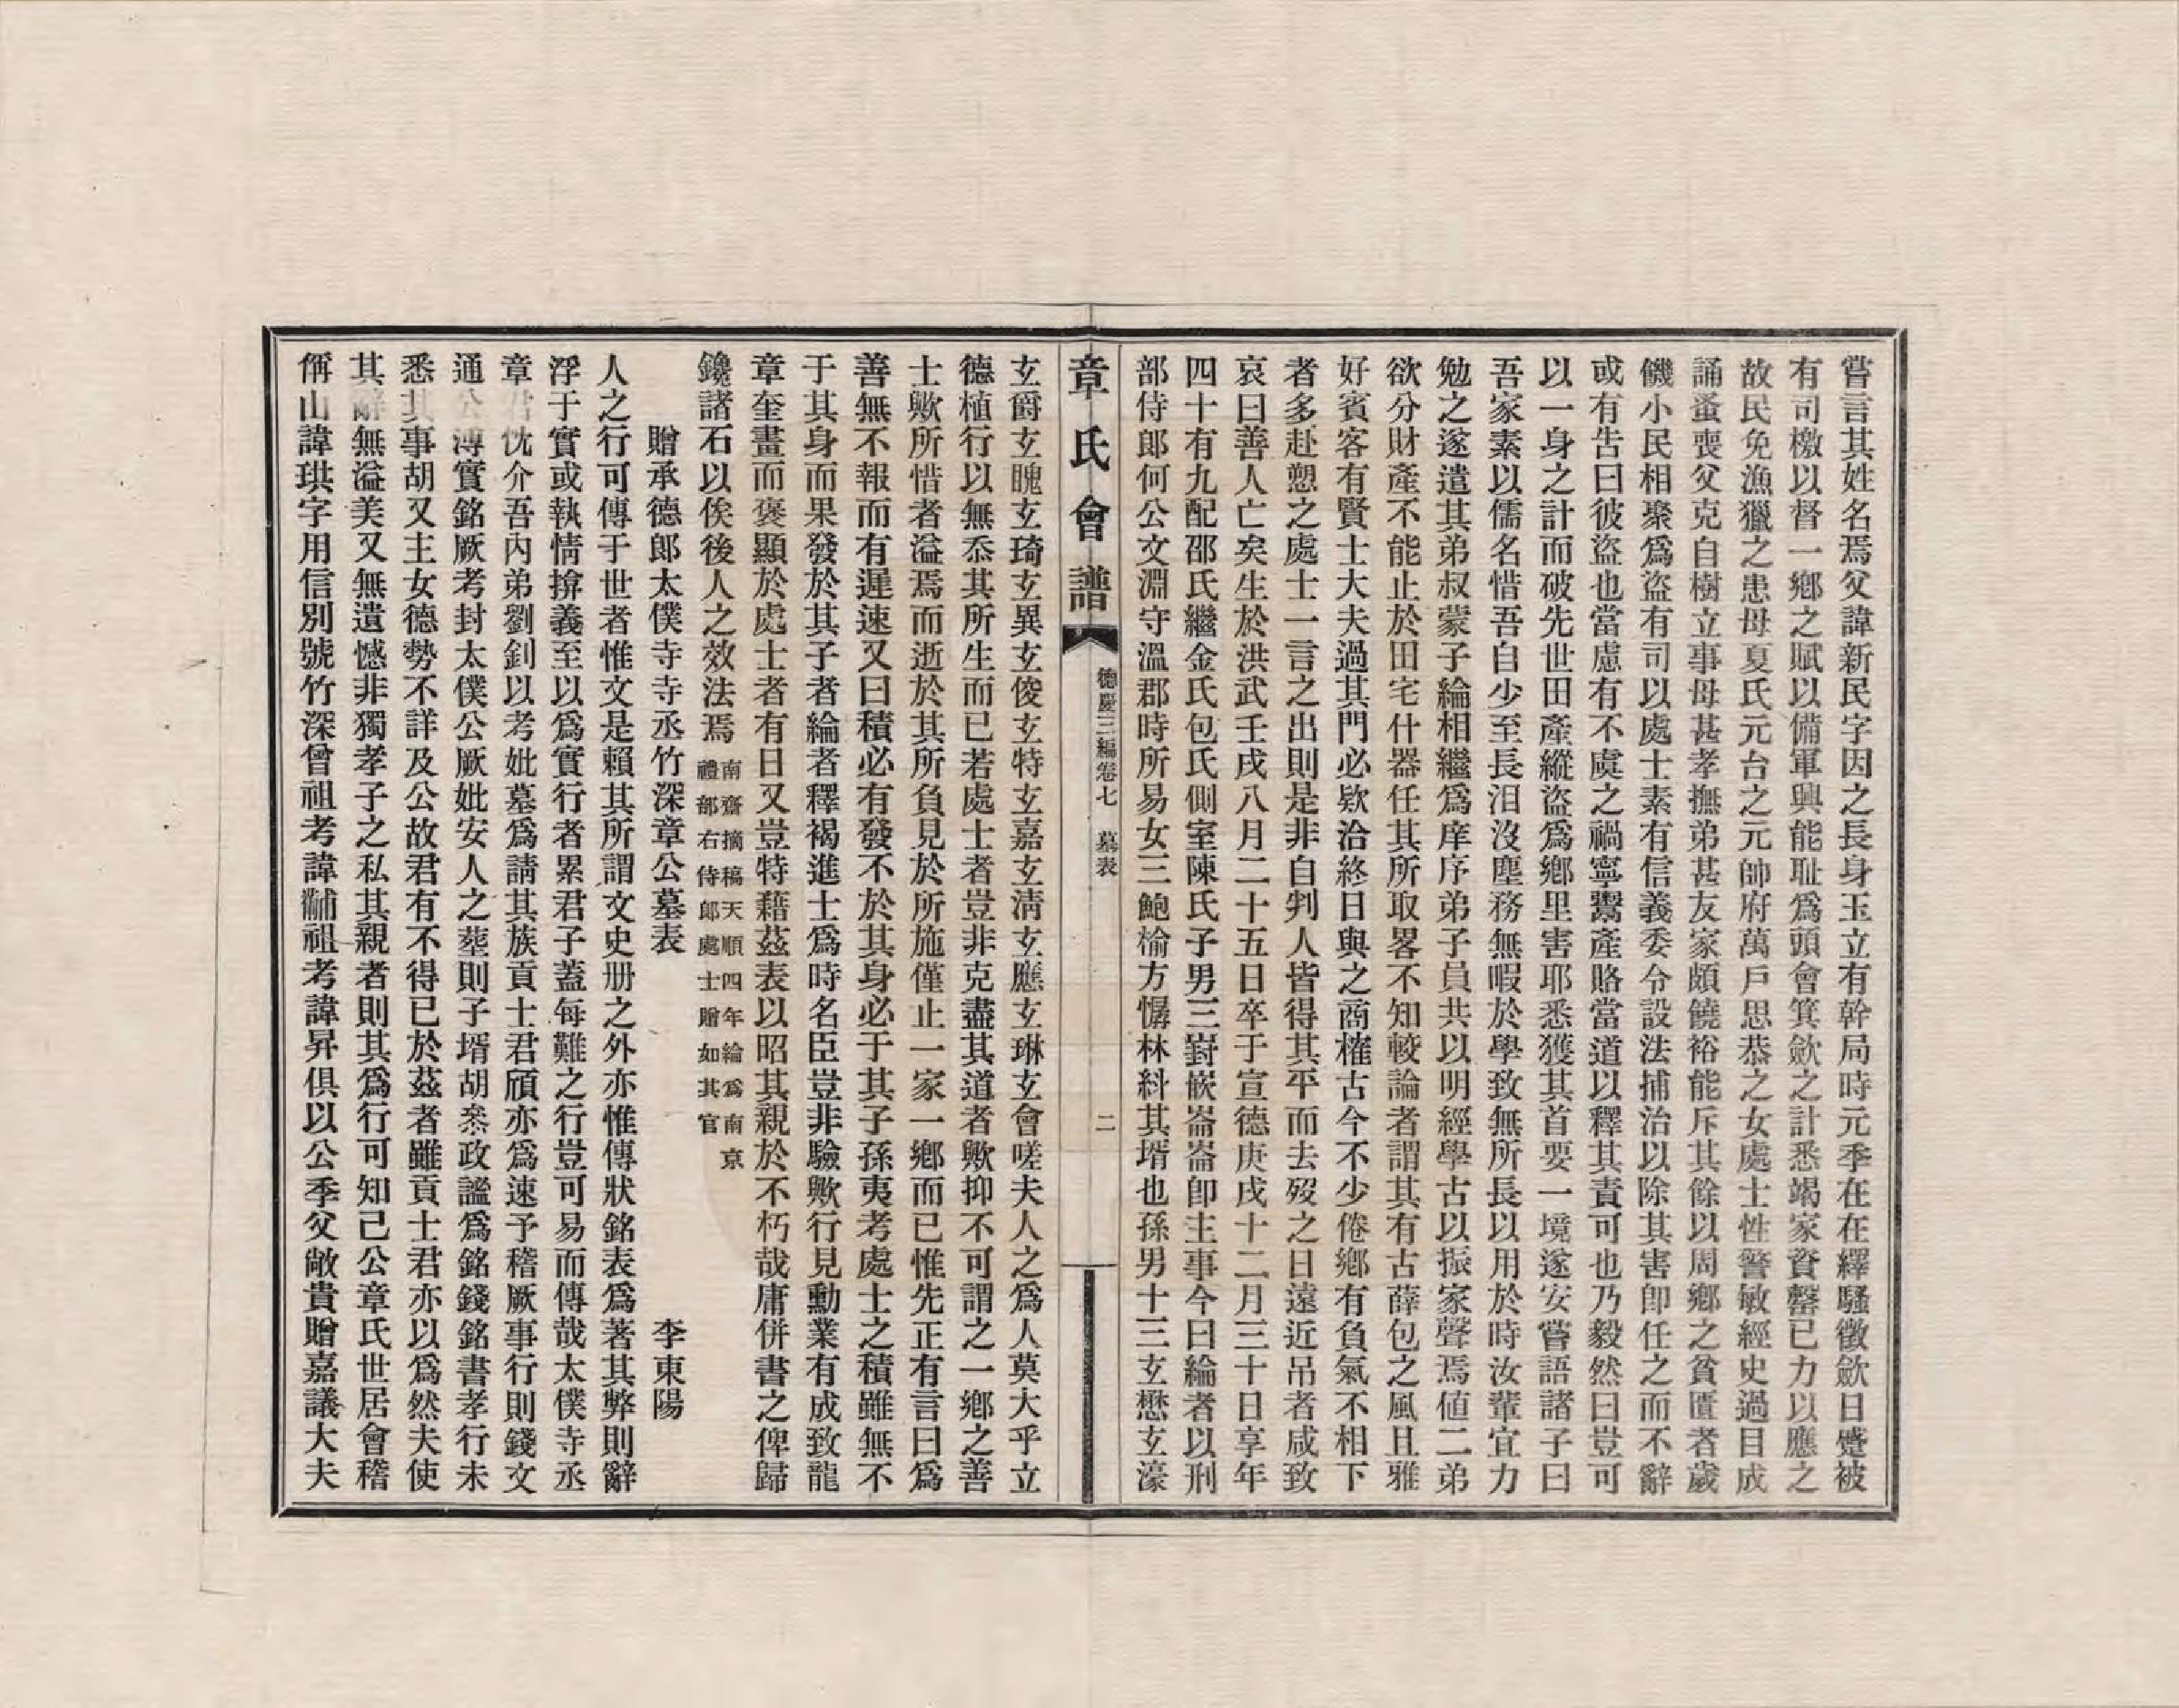 嘗言其姓名焉父諱新民字因之長身玉立有幹局時元季在在繹騷徵歛日蹙被
有司檄以督一鄉之賦以備軍興能耻爲頭會箕歛之計悉竭家資罄已力以應之
故民免漁獵之患母夏氏元台之元帥府萬戶思恭之女處士性警敏經史過目成
誦蚤喪父克自樹立事母甚孝撫弟甚友家頗饒裕能斥其餘以周鄉之貧匱者歲
饑小民相聚爲盜有司以處士素有信義委令設法捕治以除其害卽任之而不辭
或有告曰彼盜也當慮有不虞之禍寧鬻產賂當道以釋其責可也乃毅然曰豈可
以一身之計而破先世田產縱盜爲鄉里害耶悉獲其首要一境遂安嘗語諸子曰
吾家素以儒名惜吾自少至長汩沒塵務無暇於學致無所長以用於時汝輩宜力
勉之遂遣其弟叔蒙子綸相繼爲庠序弟子員共以明經學古以振家聲焉値二弟
欲分財產不能止於田宅什器任其所取畧不知較論者謂其有古薛包之風且雅
好賓客有賢士大夫過其門必欵洽終日與之商榷古今不少倦鄉有負氣不相下
者多赴愬之處士一言之出則是非自判人皆得其平而去歿之日遠近吊者咸致
哀曰善人亡矣生於洪武壬戌八月二十五日卒于宣德庚戌十二月三十日享年
四十有九配邵氏繼金氏包氏側室陳氏子男三崶嵌崙崙卽主事今曰綸者以刑
部侍郎何公文淵守溫郡時所易女三鮑楡方懤林紏其壻也孫男十三玄懋玄濠
章氏會譜
德慶三編卷七 墓表
二
玄爵玄䫥玄琦玄異玄俊玄特玄嘉玄淸玄應玄琳玄會嗟夫人之爲人莫大乎立
德植行以無忝其所生而已若處士者豈非克盡其道者歟抑不可謂之一鄉之善
士歟所惜者溢焉而逝於其所負見於所施僅止一家一鄉而已惟先正有言曰爲
善無不報而有遲速又曰積必有發不於其身必于其子孫夷考處士之積雖無不
于其身而果發於其子者綸者釋褐進士爲時名臣豈非驗歟行見勳業有成致龍
章奎畫而褒顯於處士者有日又豈特藉茲表以昭其親於不朽哉庸併書之俾歸
鑱諸石以俟後人之效法焉 南齋摘稿天順四年綸爲南京
禮部右侍郎處士贈如其官
贈承德郎太僕寺寺丞竹深章公墓表 李東陽
人之行可傳于世者惟文是賴其所謂文史册之外亦惟傳狀銘表爲著其弊則辭
浮于實或執情揜義至以爲實行者累君子蓋每難之行豈可易而傳哉太僕寺丞
章君忱介吾內弟劉釗以考妣墓爲請其族貢士君頎亦爲速予稽厥事行則錢文
通公溥實銘厥考封太僕公厥妣安人之葬則子壻胡叅政謐爲銘錢銘書孝行未
悉其事胡又主女德勢不詳及公故君有不得已於茲者雖貢士君亦以爲然夫使
其辭無溢美又無遺憾非獨孝子之私其親者則其爲行可知己公章氏世居會稽
偁山諱珙字用信別號竹深曾祖考諱黼祖考諱昇俱以公季父敞貴贈嘉議大夫